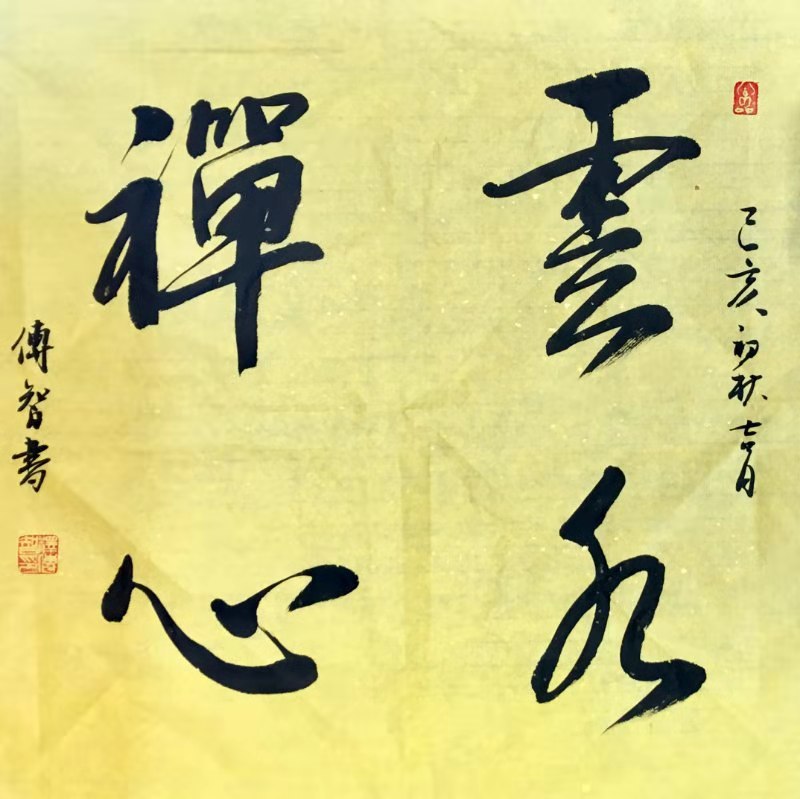 己亥初秋吉月
雲水
禪心
傳智書